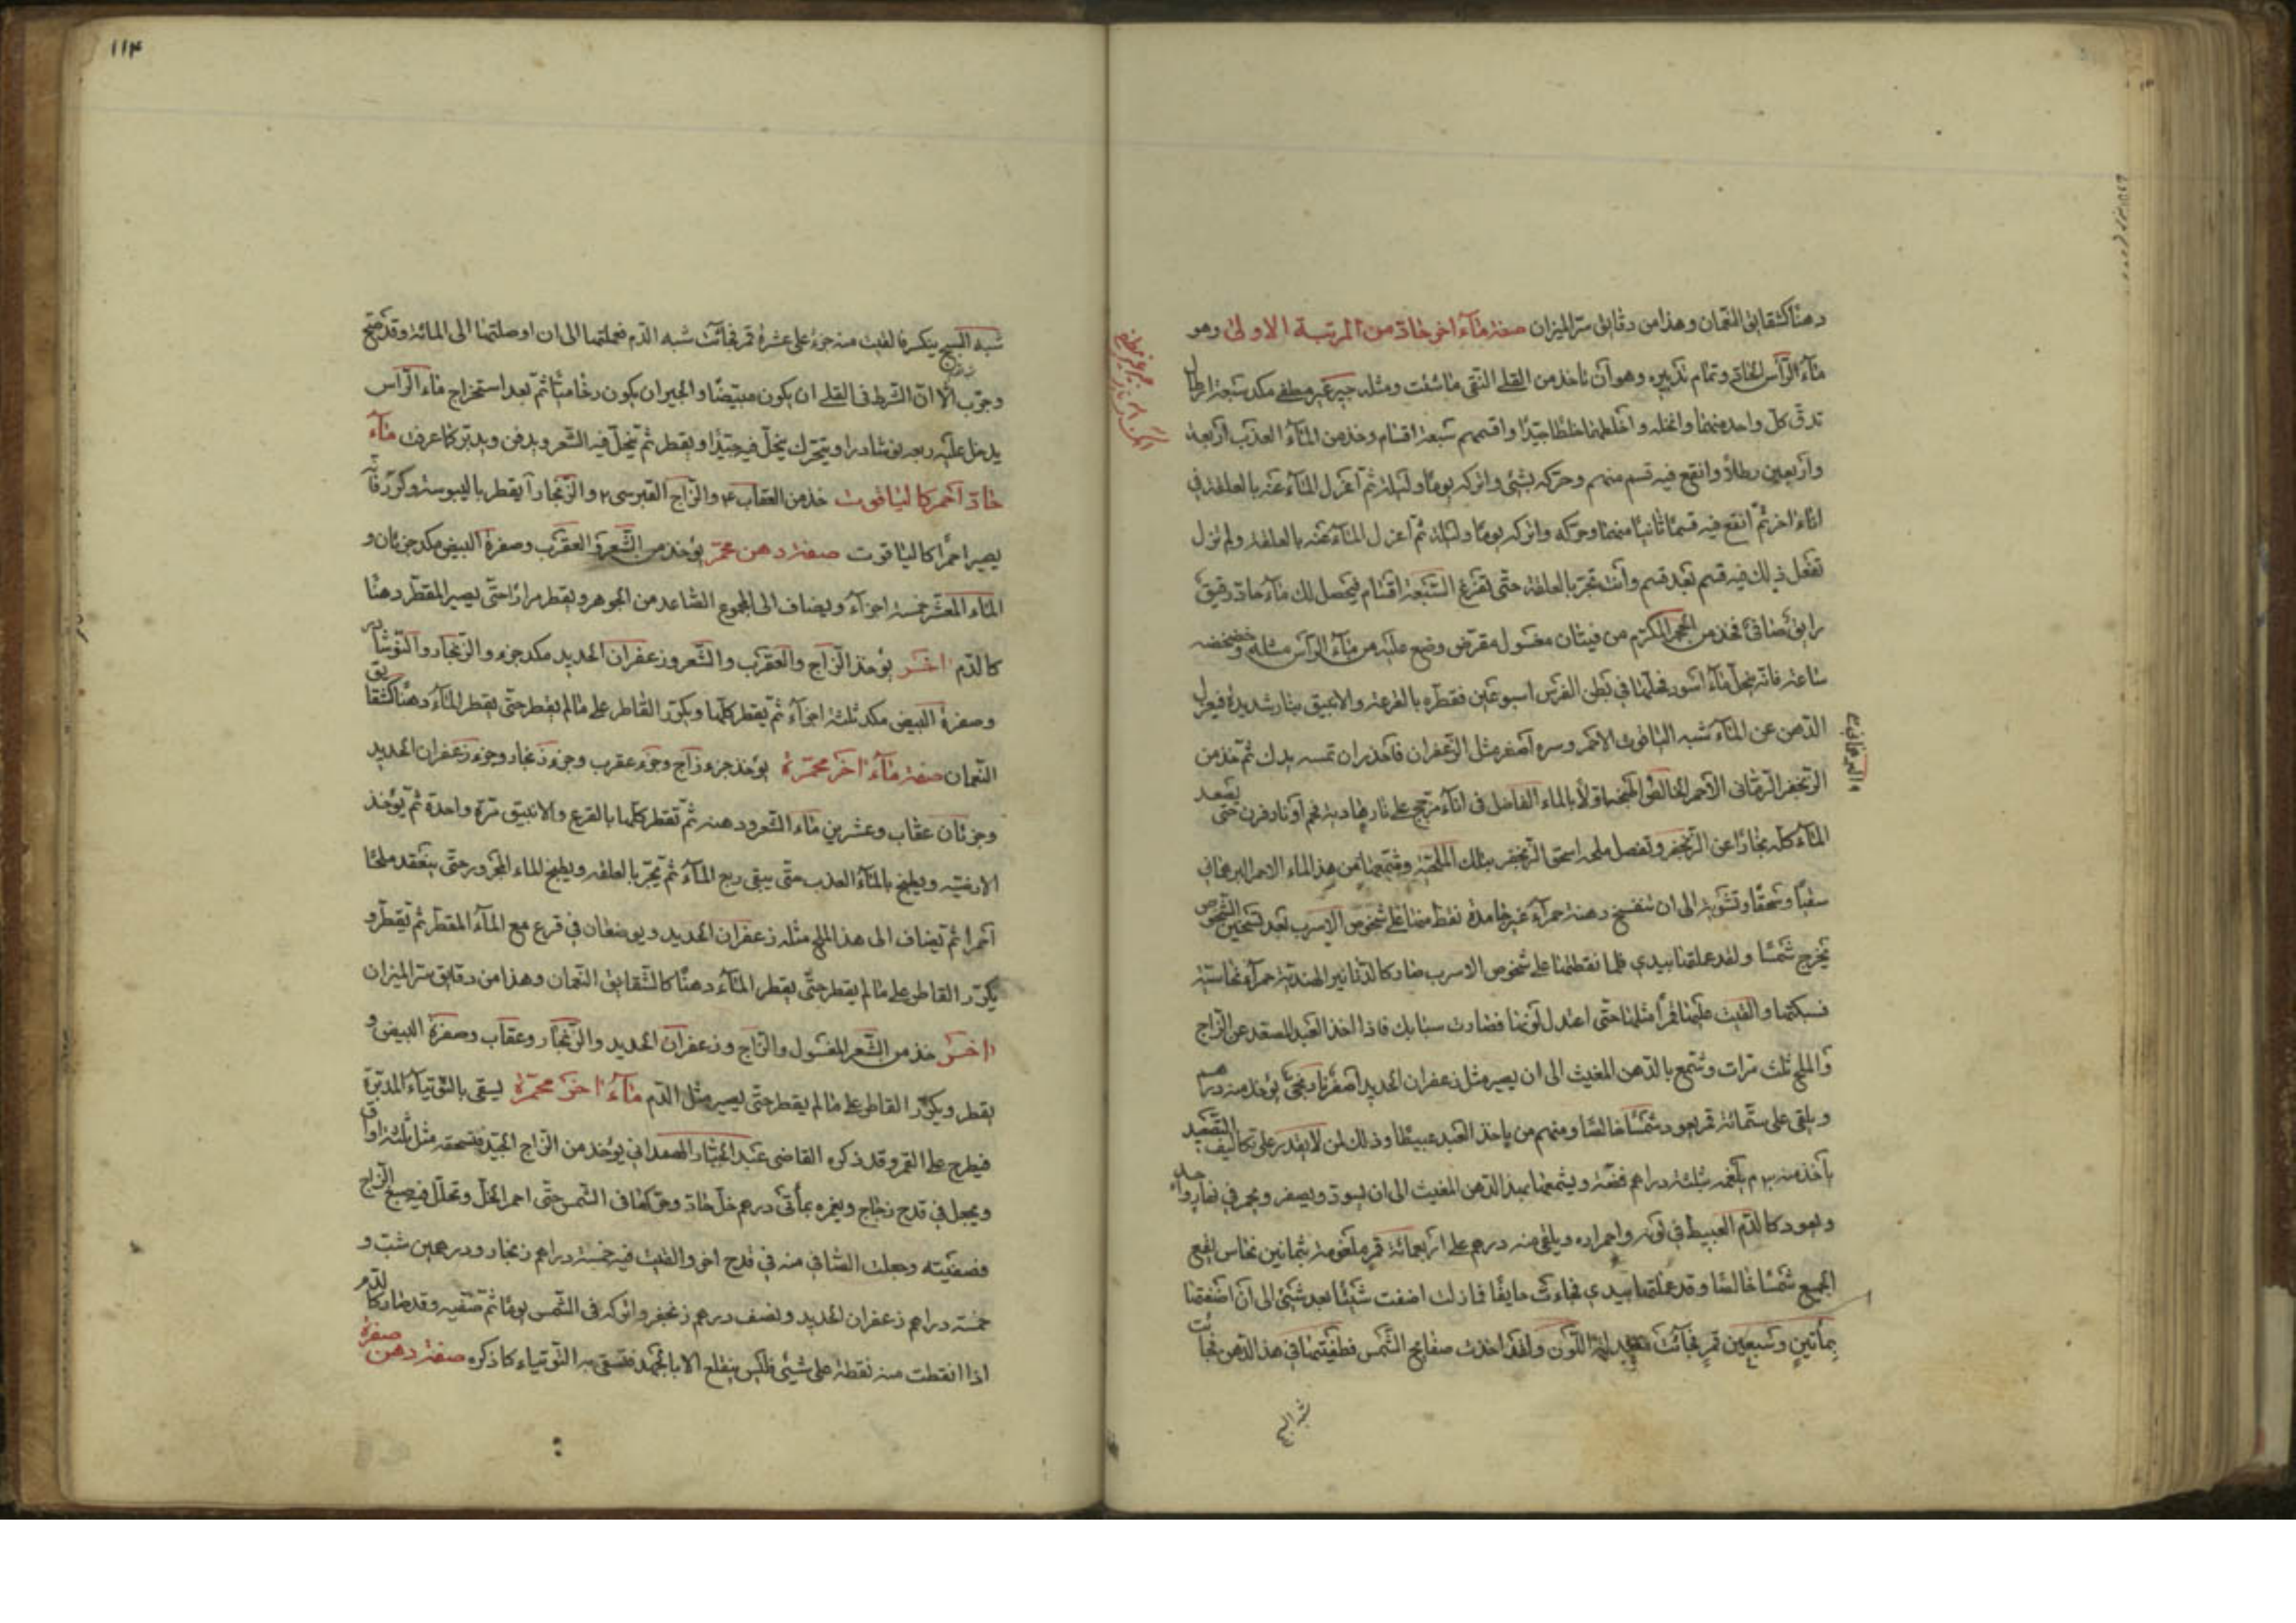 دهنا كشقايق النعمان وهذا من دقايق سر الميزان صفة ماء اخر حاد من المرتبة الاولى وهو
ماء الراس الحاد وتمام تدبيره وهو ان تاخذ من القلي النقي ما شئت ومثله جير غير مطفى مكد سبعة ارطال
تدق كل واحد منهما وانخله واخلطهما خلطا جيدا واقسمهم سبعة اقسام وخذ من الماء العذب اربعة
واربعين رطلا وانقع فيه قسم منهم وحركه بشئ واتركه يوما وليلة ثم اعزل الماء عنه بالعلقة في
اناء اخر ثم انقع فيه قسما ثانيا منهما وحركه واتركه يوما وليلة ثم اعزل الماء عنه بالعلقة ولم تزل
تفعل ذلك فيه قسم بعد قسم وانت تجر بالعلقة حتى تفرغ السبعة اقسام فيحصل لك ماء حاد رقيق
رايق صافي فخذ من الحجر المكرم من فتيان مغسول مقرض وضع عليه من ماء الراس مثله وخضخضه
ساعة فانه ينحل ماء اسود فحلها في بطن الفرس اسبوعين فقطره بالقرعة والانبيق بنار شديدة فيعزل
الدهن عن الماء كشبه الياقوت الاحمر وسره اصفر مثل الزعفران فاحذر ان تمسه بيدك ثم خذ من
الزنجفر الرماني الاحمر الخالص اولا بالماء الفاضل في اناء مزجج على نار هادية فحم او نار فرن حتى يصعد
الماء كله بخارا عن الزنجفر وتفصل ملحه اسحق الزنجفر بتلك الملحية وشمعها من هذا الماء الاحمر البرهاني
سقيا وسحقا وتشوية الى ان تنفسخ دهنة حمراء غير جامدة نقط منها على شخوص الاسرب بعد تسخين الشخوص
يخرج شمسا ولقد عملتها بيدي فلما نقطتها على شخوص الاسرب صار كالدنانير الهندية حمراء نحاسية
فسبكتها والقيت عليها قمرا مثلها حتى اعتدل لونها فصارت سبايك فاذا اخذ العبد المصعد عن الزاج
والملح ثلث مرات وشمع بالدهن المغيث الى ان يصير مثل زعفران الحديد اصفر يؤخذ منه درهم
ويلقى على ستمائة قمر يعود شمسا خالصا ومنهم من ياخذ العبد عبيطا وذلك لمن لا يقدر على تكاليف التصعيد
ياخذ منه يلغمه بثلثة دراهم فضة ويشمعها بهذا الدهن المغيث الى ان يسود ويصفر ويحمر في
ويعود كالدم العبيط في لونه واحمراره ويلقى منه درهم على اربعمائة قمر ملغومة بثمانين نحاس يقع
الجميع شمسا خالصا وقد عملتها بيدي فجاءت حايفا فازلت اضفت شيئا بعد شئ الى ان اضفتها
بمأتين وسبعين قمر فجاءت اللون ولقد اخذت صفايح الشمس فطفيتها في هذا الدهن فجاءت
شبه السبج
البرهاني
١١٣
شبه السبج ينكسر فالقيت منه جزء على عشرة قمر فجائت شبه الدم فعملتها الى ان اوصلتها الى المائة وقد صح
وجرب الا ان الشرط في القلي ان يكون مبيضا والجير ان يكون رخاميا ثم بعد استخراج ماء الراس
يدخل عليه ربعه نوشادرا ويتحرك ينحل فيه جيدا ويقطر ثم ينحل فيه الشعر ويدفن ويدبر كما عرفت ماء
حاد احمر كالياقوت خذ من العقاب ٤ والزاج القبرسي ٢ والزنجار ا يقطر باليبوسة وكرر فانه
يصير احمرا كالياقوت صفة دهن محمر يؤخذ من الشعر والعقرب وصفرة البيض مكد جزءان و
الماء المعشر خمسة اجزاء ويضاف الى المجموع الصاعد من الجوهر ويقطر مرارا حتى يصير المقطر دهنا
كالدم اخر يؤخذ الزاج والعقرب والشعر وزعفران الحديد مكد جزء والزنجار والنوشادر
وصفرة البيض مكد ثلثة اجزاء ثم يقطر كلها ويكرر القاطر على ما لم يقطر حتى يقطر الماء دهنا كشقايق
النعمان صفة ماء اخر محمرة يؤخذ جزء زاج وجزء عقرب وجزء زنجار وجزء زعفران الحديد
وجزئان عقاب وعشرين ماء الشعر ودهنه ثم تقطر كلها بالقرع والانبيق مرة واحدة ثم يؤخذ
الارضية ويطبخ بالماء العذب حتى يبقى ربع الماء ثم يجر بالعلقة ويطبخ الماء المجرور حتى ينعقد ملحا
احمرا ثم يضاف الى هذا الملح مثله زعفران الحديد ويوضعان في قرع مع الماء المقطر ثم يقطر و
يكرر القاطر على ما لم يقطر حتى يقطر الماء دهنا كالشقايق النعمان وهذا من دقايق سر الميزان
اخر خذ من الشعر المغسول والزاج وزعفران الحديد والزنجار وعقاب وصفرة البيض و
يقطر ويكرر القاطر على ما لم يقطر حتى يصير مثل الدم ماء اخر محمرة يسقى بالتوتياء المدبرة
فيطرح على القمر وقد ذكره القاضي عبد الجبار الهمداني يؤخذ من الزاج الجيد فتسحقه مثل ثلثة اواق
ويجعل في قدح زجاج ويغمره بمأتي درهم خل حاد وحركها في الشمس حتى احمر الخل وتحلل فيه صبغ الزاج
فصفيته وجعلت الصافي منه في قدح اخر والقيت فيه خمسة دراهم زنجار ودرهمين شب و
خمسة دراهم زعفران الحديد ونصف درهم زنجفر واتركه في الشمس يوما ثم تصفيه وقد صار كالدم
اذا انقطت منه نقطة على شيئ فليس ينقلع الا بالجهد فتسقى به التوتياء كما ذكره صفة دهن صفرة